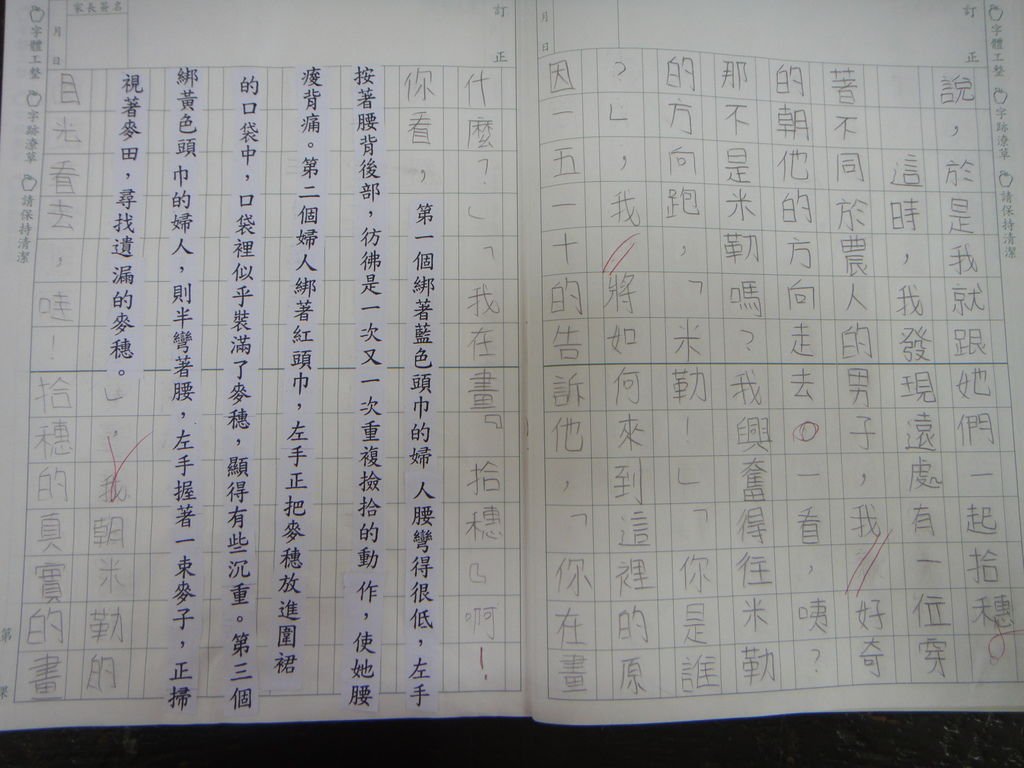 字體工整 字跡潦草 請保持清潔
訂正
月日
說，於是我就跟她們一起拾穗。
這時，我發現遠處有一位穿
著不同於農人的男子，我好奇
的朝他的方向走去。一看，咦？
那不是米勒嗎？我興奮得往米勒
的方向跑，「米勒！」「你是誰
？」，我將如何來到這裡的原
因一五一十的告訴他，「你在畫
訂正
家長簽名
月日
字體工整 字跡潦草 請保持清潔
什麼？」「我在畫『拾穗』啊！
你看，第一個綁著藍色頭巾的婦人腰彎得很低，左手
按著腰背後部，彷彿是一次又一次重複撿拾的動作，使她腰
痠背痛。第二個婦人綁著紅頭巾，左手正把麥穗放進圍裙
的口袋中，口袋裡似乎裝滿了麥穗，顯得有些沉重。第三個
綁黃色頭巾的婦人，則半彎著腰，左手握著一束麥子，正掃
視著麥田，尋找遺漏的麥穗。」，我朝米勒的
目光看去，哇！拾穗的真實的畫
第
課